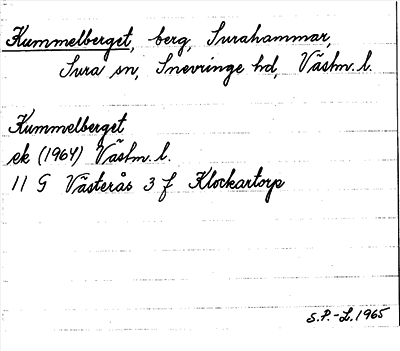 Kummelberget, berg, Surahammar,
Sura sn, Snevringe hd, Västm. l.
Kummelberget
ek (1964) Västm. l.
11 G Västerås 3 f Klockartorp
S.P.-L. 1965